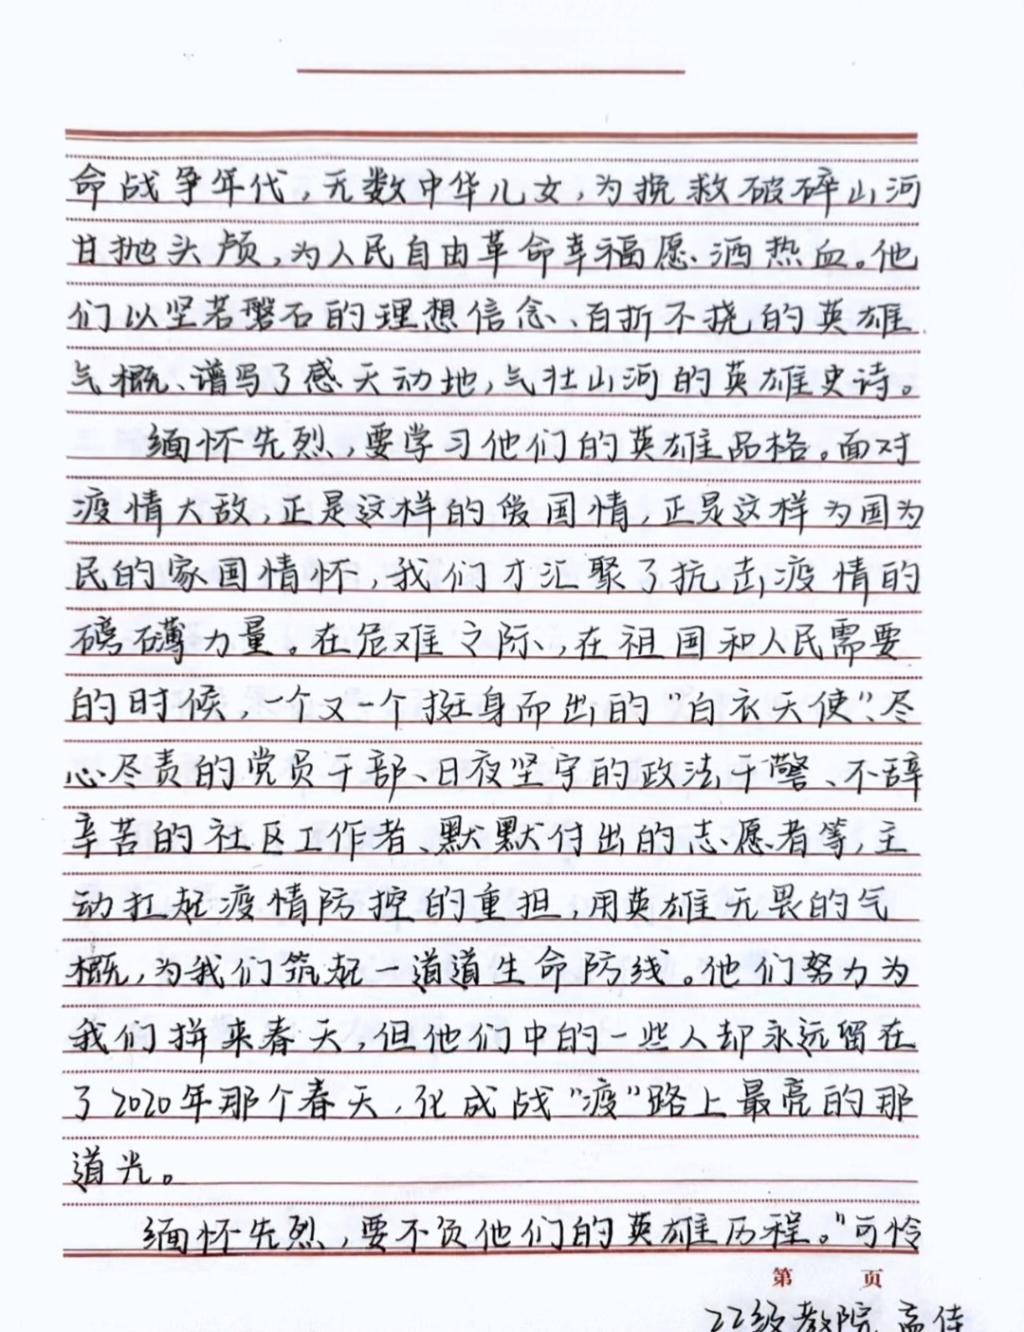 命战争年代，无数中华儿女，为挽救破碎山河
甘抛头颅，为人民自由革命幸福愿洒热血。他
们以坚若磐石的理想信念、百折不挠的英雄
气概、谱写了感天动地，气壮山河的英雄史诗。
缅怀先烈，要学习他们的英雄品格。面对
疫情大敌，正是这样的爱国情，正是这样为国为
民的家国情怀，我们才汇聚了抗击疫情的
磅礴力量。在危难之际，在祖国和人民需要
的时候，一个又一个挺身而出的"白衣天使"、尽
心尽责的党员干部、日夜坚守的政法干警、不辞
辛苦的社区工作者、默默付出的志愿者等，主
动扛起疫情防控的重担，用英雄无畏的气
概，为我们筑起一道道生命防线。他们努力为
我们拼来春天，但他们中的一些人却永远留在
了2020年那个春天，化成战"疫"路上最亮的那
道光。
缅怀先烈，要不负他们的英雄历程。"可怜
第 页
22级教院 孟佳